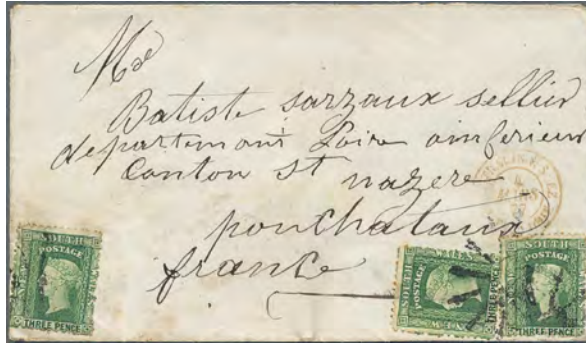 Mr
Batiste sarzaux sellier
departement Loire amferieur
Canton st nazere
ponchataux
france
SOUTH
POSTAGE
THREE PENCE
SOUTH
POSTAGE
THREE PENCE
SOUTH
POSTAGE
THREE PENCE